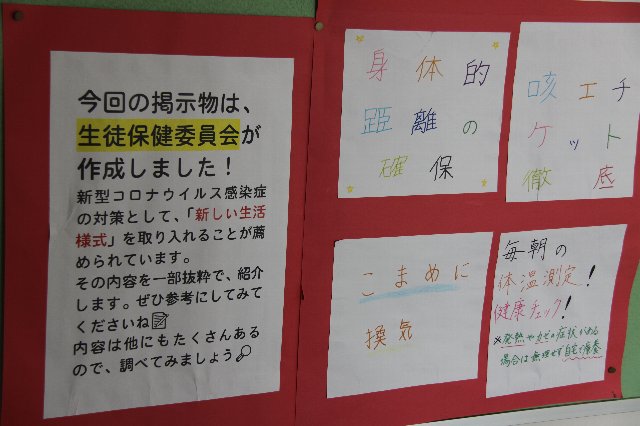 今回の掲示物は、
生徒保健委員会が
作成しました！
新型コロナウイルス感染症
の対策として、「新しい生活
様式」を取り入れることが薦
められています。
その内容を一部抜粋で、紹介
します。ぜひ参考にしてみて
くださいね
内容は他にもたくさんある
ので、調べてみましょう
身体的
距離の
確保
咳エチ
ケット
徹底
こまめに
換気
毎朝の
体温測定！
健康チェック！
※発熱やかぜの症状がある
場合は無理せず自宅で療養